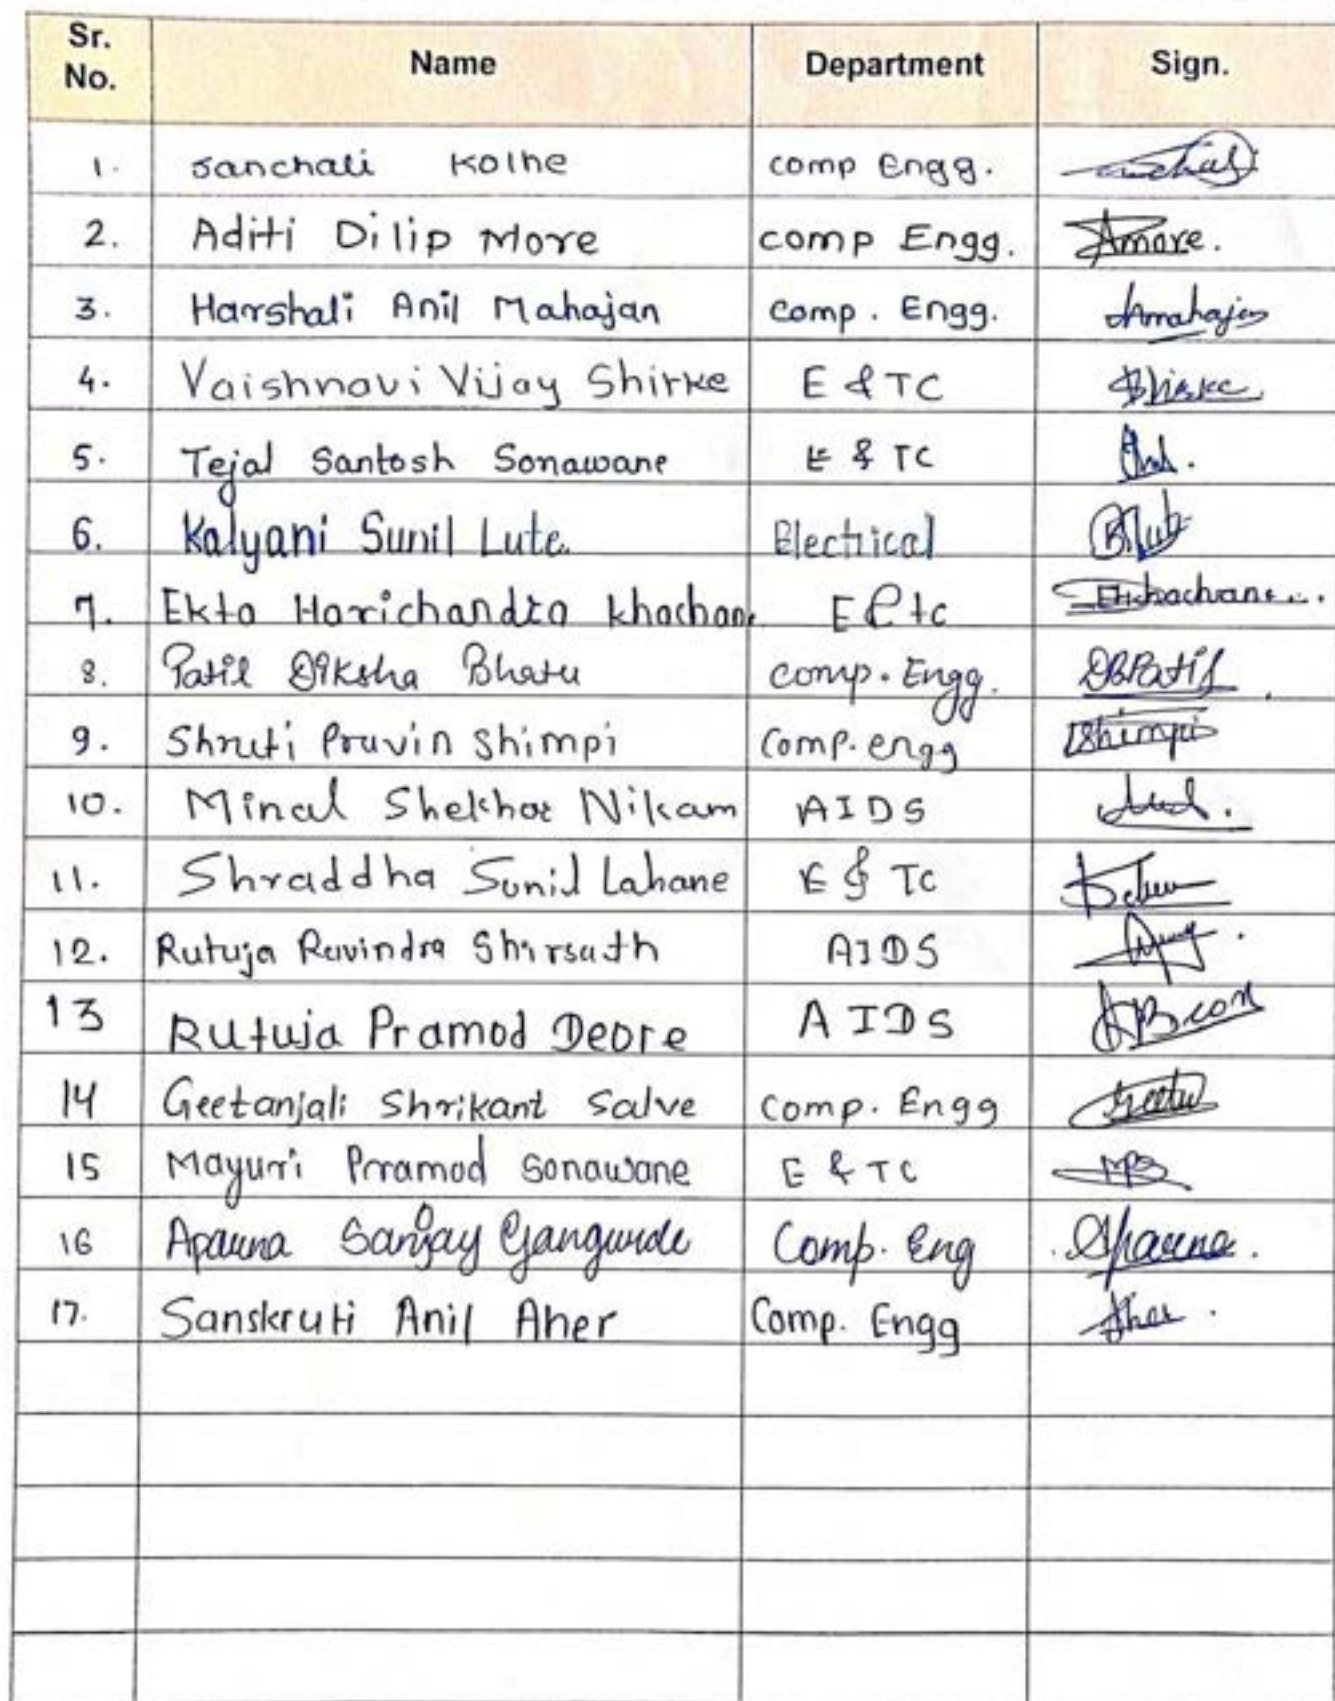 Sr. No. Name Department Sign.
1. Sanchali Kolhe comp Engg.
2. Aditi Dilip More comp Engg. Amore.
3. Harshali Anil Mahajan comp. Engg. Amahajan
4. Vaishnavi Vijay Shirke E & TC Shirke
5. Tejal Santosh Sonawane E & TC
6. Kalyani Sunil Lute. Electrical
7. Ekta Harichandra khachane E & tc EHkhachane...
8. Patil Diksha Bhatu comp. Engg. DBPatil
9. Shruti Pravin Shimpi Comp. engg Shimpi
10. Minal Shekhar Nikam AIDS
11. Shraddha Sunil Lahane E & TC
12. Rutuja Ravindra Shirsath AIDS
13 Rutuja Pramod Deore AIDS
14 Geetanjali Shrikant Salve Comp. Engg
15 Mayuri Pramod Sonawane E & TC MPS
16 Aparna Sanjay Gangurde Comp. Eng Aparna.
17. Sanskruti Anil Aher Comp. Engg Aher.